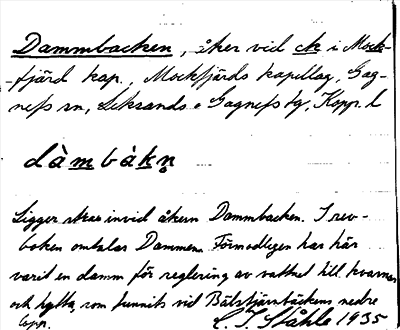 Dammbacken, åker vid ck i Mock-
-fjärd kap., Mockfjärds kapellag, Gag-
nefs sn, Leksands o Gagnefs tg, Kopp. l
dàmbàkn̥
Ligger strax invid åkern Dammbacken. I rev-
boken omtalas Dammen. Förmodligen har här
varit en damm för reglering av vattnet till kvarnar
och hytta, som funnits vid Båtstjärnbäckens nedre
lopp. C. I. Ståhle 1935